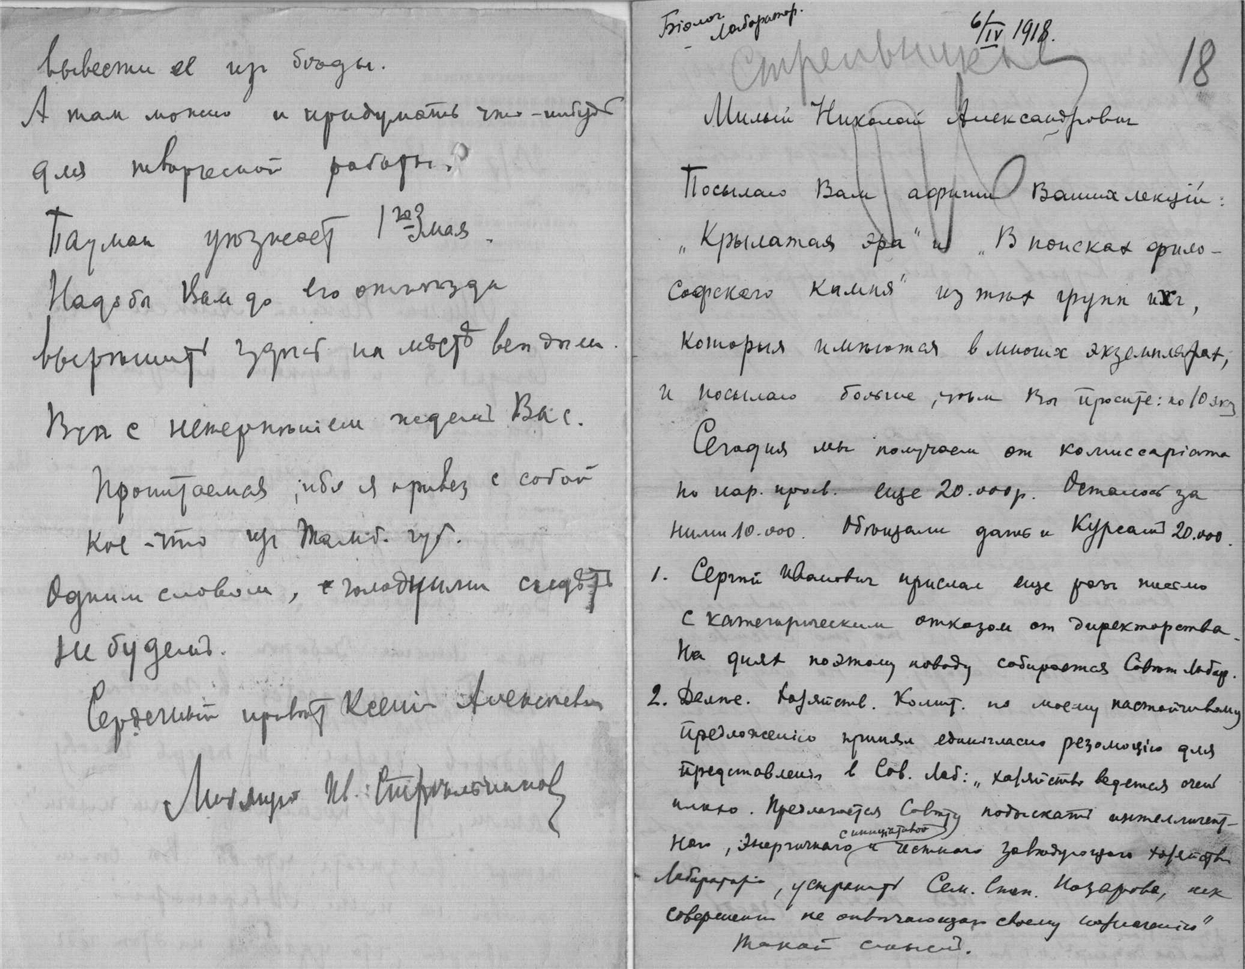 вывести ее из беды.
А там можно и придумать что-нибудь
для творческой работы?
Пауман уезжает 1го мая.
Надо бы Вам до его отъѣзда
вырѣшить здѣсь на мѣстѣ
Всѣ с нетерпѣніем ждемъ Вас.
Пропитаемся, ибо я привез с собой
кое-что из Тамб. губ.
Одним словом, голодными сидѣть
не будемъ.
Сердечный привѣт Ксеніи Алексѣевнѣ
Любящій Ив. Стрѣльников
Біолог. Лаборатор.
6/IV 1918.
Стрельников
18
Милый Николай Александрович
Посылаю Вам афиши Ваших лекцій:
„Крылатая эра" и „В поисках фило-
софскаго камня" из тѣх групп их,
которыя имѣются в многих экземплярах,
и посылаю больше, чѣм Вы просите: по 10 экз
Сегодня мы получаем от комиссаріата
по нар. просв. еще 20.000 р. Осталось за
ними 10.000. Обѣщали дать и Курсам 20.000.
1. Сергѣй Иванович прислал еще разъ письмо
с категорическим отказом от директорства.
На днях поэтому поводу собирается Совѣт Лабор.
2. Хозяйств. Комит. по моему настойчивому
предложенію принял единогласно резолюцію для
представленія в Сов. Лаб: „хозяйство ведется очень
плохо. Предлагается Совѣту подыскать интеллигент-
наго, энергичнаго с инициативой и честнаго завѣдующаго хозяйств
Лабораторіи, устранить Сем. Степ. Назарова, как
совершенно не отвѣчающаго своему назначенію"
Такой смысл.